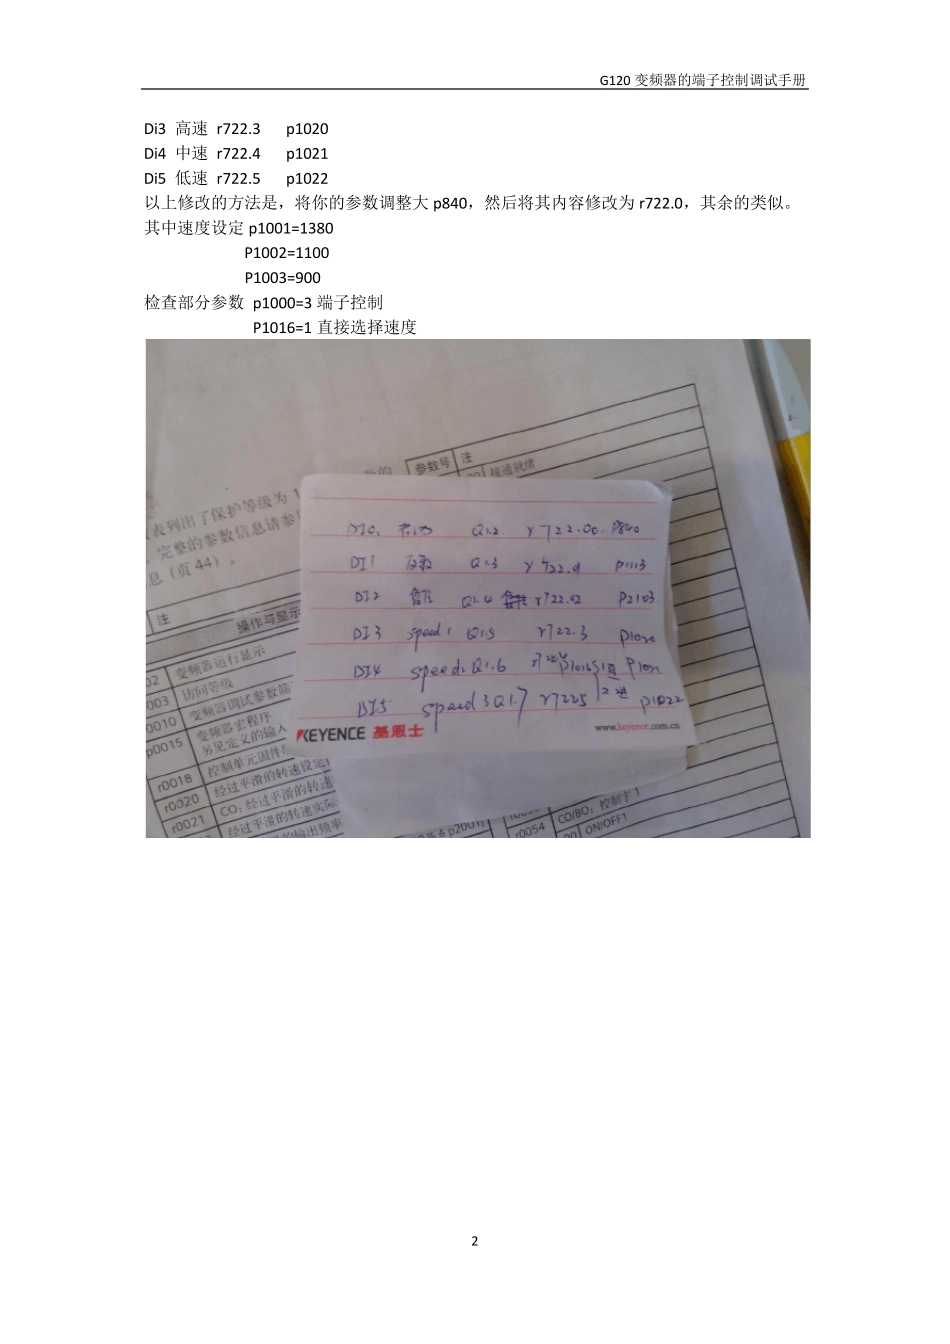 G120 变频器的端子控制调试手册
Di3 高速 r722.3 p1020
Di4 中速 r722.4 p1021
Di5 低速 r722.5 p1022
以上修改的方法是，将你的参数调整大 p840，然后将其内容修改为 r722.0，其余的类似。
其中速度设定 p1001=1380
P1002=1100
P1003=900
检查部分参数 p1000=3 端子控制
P1016=1 直接选择速度
参数号 注
接通就绪
表列出了保护等级为 1
完整的参数信息请参
息（页 44）。
注
操作与显示
02 变频器运行显示
003 访问等级
0010 变频器调试参数筛
p0015 变频器宏程序
另见定义的输入
r0018 控制单元固件
r0020 经过平滑的转速设定
r0021 CO：经过平滑的转速
经过平滑的转速实际
的输出频率
DI0 Q1.2 r722.00 P840
DI1 Q1.3 P1113
DI2 Q1.4 r722.02 P2103
DI3 speed1 Q1.5 r722.3 p1020
DI4 speed Q1.6 p1016
DI5 speed3 Q1.7 r7225 p1022
KEYENCE 基恩士
www.keyence.com.cn
r0054 CO/BO：控制字 1
00 ON/OFF1
2